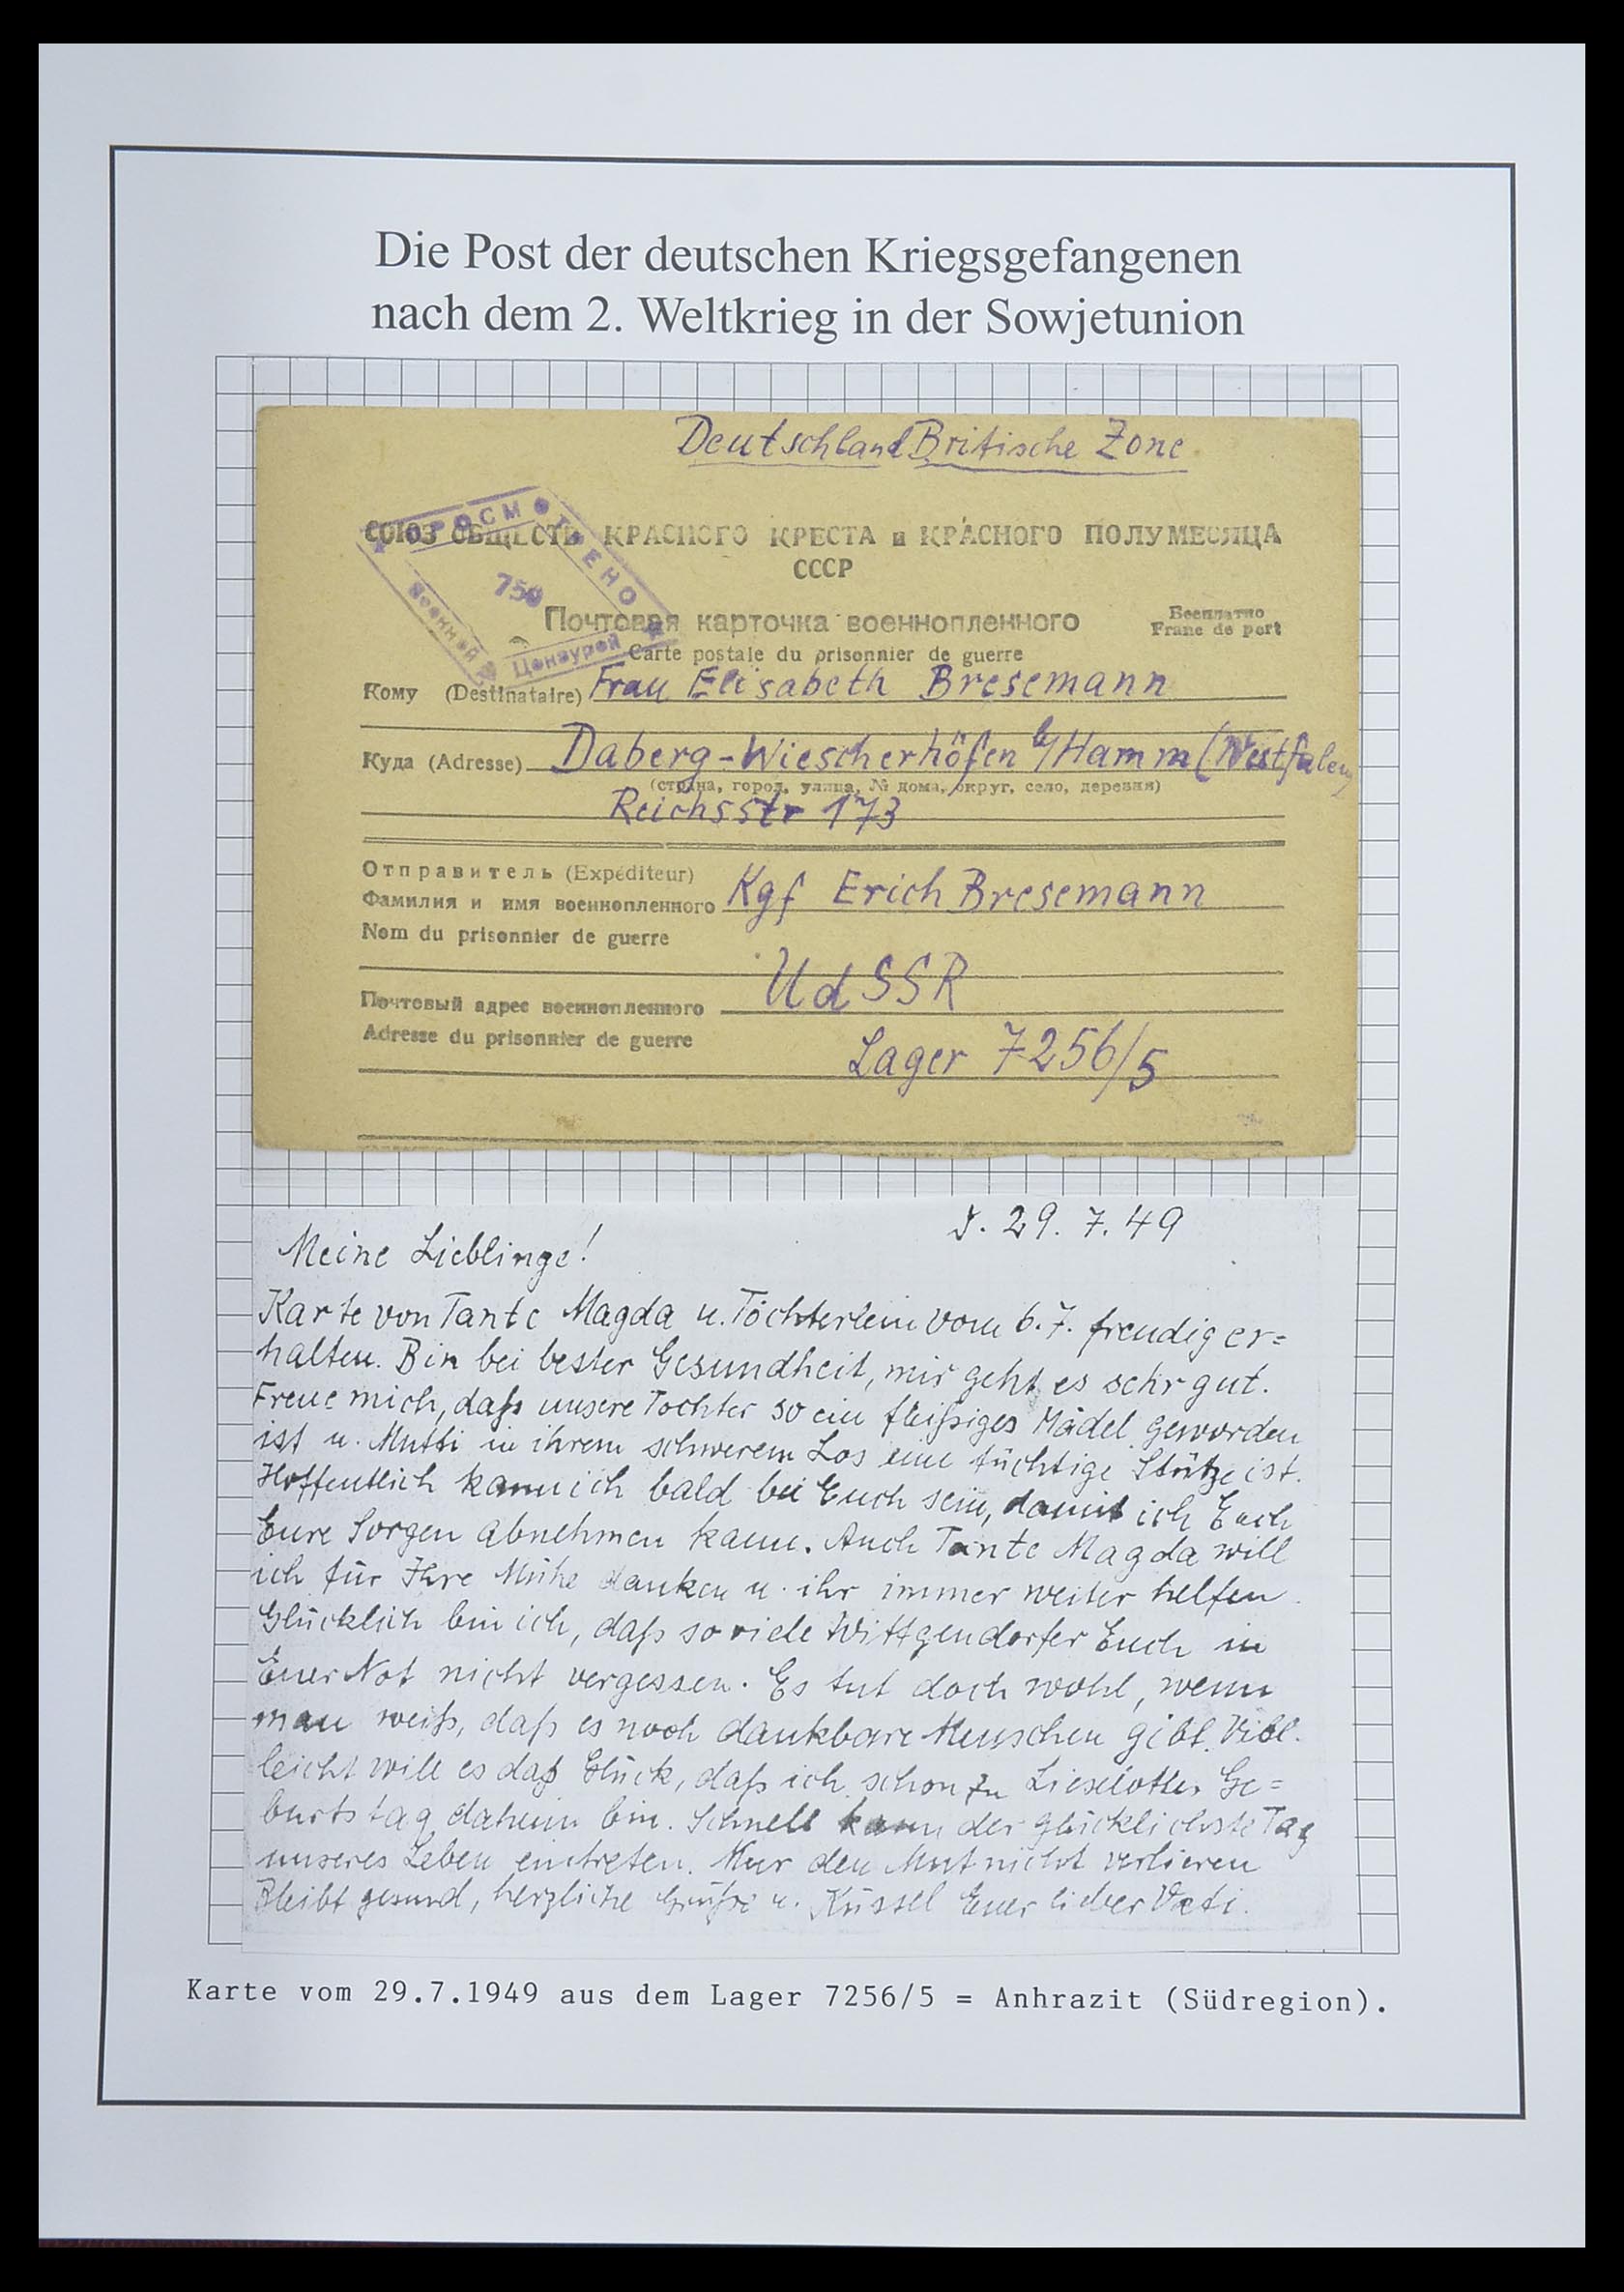 Die Post der deutschen Kriegsgefangenen
nach dem 2. Weltkrieg in der Sowjetunion
Deutschland Britische Zone
СОЮЗ ОБЩЕСТВ КРАСНОГО КРЕСТА и КРАСНОГО ПОЛУМЕСЯЦА
СССР
ПРОСМОТРЕНО
750
Военной Цензурой
Почтовая карточка военнопленного
Бесплатно
Franc de port
Carte postale du prisonnier de guerre
Кому (Destinataire) Frau Elisabeth Bresemann
Куда (Adresse) Daberg-Wiescherhöfen b/Hamm (Westfalen)
(страна, город, улица, № дома, округ, село, деревня)
Reichsstr 173
Отправитель (Expéditeur)
Фамилия и имя военнопленного Kgf Erich Bresemann
Nom du prisonnier de guerre
UdSSR
Почтовый адрес военнопленного
Adresse du prisonnier de guerre
Lager 7256/5
29.7.49
Meine Lieblinge!
Karte von Tante Magda u. Töchterlein vom 6.7. freudig er=
halten. Bin bei bester Gesundheit, mir geht es sehr gut.
Freue mich, daß unsere Tochter so ein fleißiges Mädel geworden
ist u. Mutti in ihrem schwerem Los eine tüchtige Stütze ist.
Hoffentlich kann ich bald bei Euch sein, damit ich Euch
Eure Sorgen abnehmen kann. Auch Tante Magda will
ich für Ihre Mühe danken u. ihr immer weiter helfen.
Glücklich bin ich, daß so viele Wittgendorfer Euch in
Euer Not nicht vergessen. Es tut doch wohl, wenn
man weiß, daß es noch dankbare Menschen gibt. Viel.
leicht will es daß Glück, daß ich schon zu Lieselottes Ge=
burtstag daheim bin. Schnell kann der glücklichste Tag
unseres Leben eintreten. Nur den Mut nicht verlieren
Bleibt gesund, herzliche Grüße u. Küssel Euer lieber Vati.
Karte vom 29.7.1949 aus dem Lager 7256/5 = Anhrazit (Südregion).